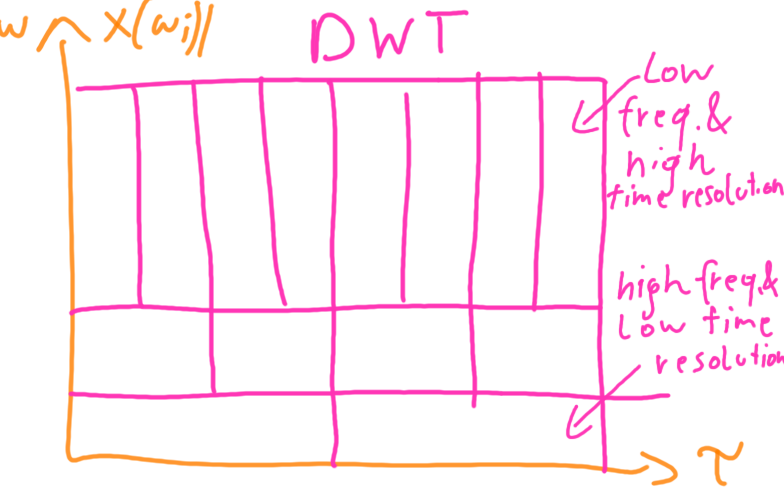 w X(ωi)|
DWT
Low
freq.&
high
time resolution
high freq.&
Low time
resolution
τ